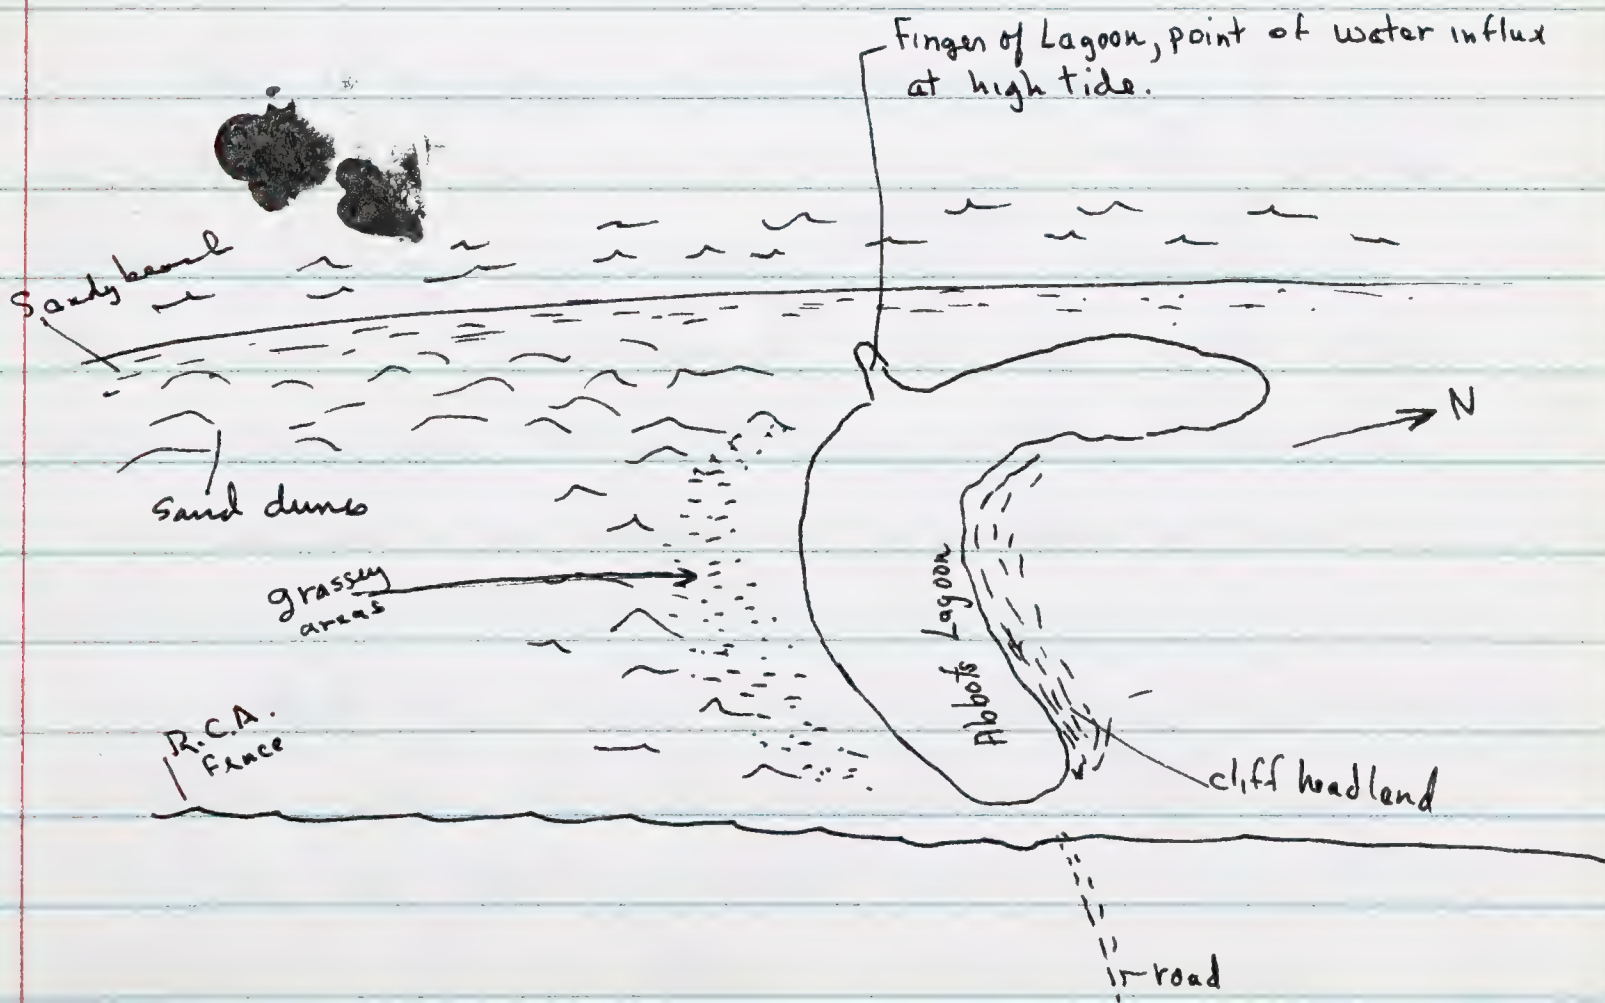 Finger of Lagoon, point of water influx
at high tide.
Sandy beach
N
Sand dunes
grassey
areas
Abbots Lagoon
R.C.A.
Fence
cliff headland
road